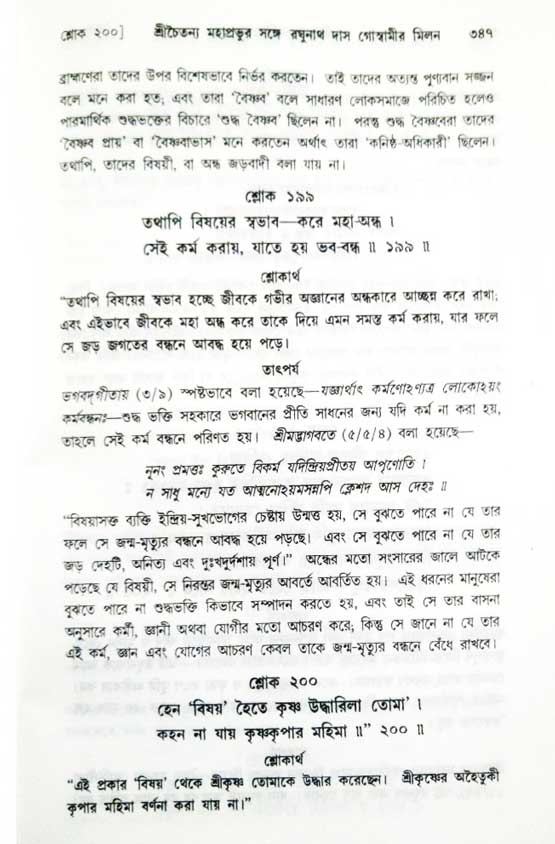 শ্লোক ২০০]
শ্রীচৈতন্য মহাপ্রভুর সঙ্গে রঘুনাথ দাস গোস্বামীর মিলন
৩৪৭
ব্রাহ্মণেরা তাদের উপর বিশেষভাবে নির্ভর করতেন। তাই তাদের অত্যন্ত পুণ্যবান সজ্জন
বলে মনে করা হত; এবং তারা 'বৈষ্ণব' বলে সাধারণ লোকসমাজে পরিচিত হলেও
পারমার্থিক শুদ্ধভক্তের বিচারে 'শুদ্ধ বৈষ্ণব' ছিলেন না। পরন্তু শুদ্ধ বৈষ্ণবেরা তাদের
'বৈষ্ণব প্রায়' বা 'বৈষ্ণবাভাস' মনে করতেন অর্থাৎ তারা 'কনিষ্ঠ-অধিকারী' ছিলেন।
তথাপি, তাদের বিষয়ী, বা অন্ধ জড়বাদী বলা যায় না।
শ্লোক ১৯৯
তথাপি বিষয়ের স্বভাব—করে মহা-অন্ধ ।
সেই কর্ম করায়, যাতে হয় ভব-বন্ধ ॥ ১৯৯ ॥
শ্লোকার্থ
"তথাপি বিষয়ের স্বভাব হচ্ছে জীবকে গভীর অজ্ঞানের অন্ধকারে আচ্ছন্ন করে রাখা;
এবং এইভাবে জীবকে মহা অন্ধ করে তাকে দিয়ে এমন সমস্ত কর্ম করায়, যার ফলে
সে জড় জগতের বন্ধনে আবদ্ধ হয়ে পড়ে।
তাৎপর্য
ভগবদ্‌গীতায় (৩/৯) স্পষ্টভাবে বলা হয়েছে—যজ্ঞার্থাৎ কর্মণোহণ্যত্র লোকোহয়ং
কর্মবন্ধনঃ—শুদ্ধ ভক্তি সহকারে ভগবানের প্রীতি সাধনের জন্য যদি কর্ম না করা হয়,
তাহলে সেই কর্ম বন্ধনে পরিণত হয়। শ্রীমদ্ভাগবতে (৫/৫/৪) বলা হয়েছে—
নূনং প্রমত্তঃ কুরুতে বিকর্ম যদিন্দ্রিয়প্রীতয় আপৃণোতি ।
ন সাধু মন্যে যত আত্মনোহয়মসন্নপি ক্লেশদ আস দেহঃ ॥
"বিষয়াসক্ত ব্যক্তি ইন্দ্রিয়-সুখভোগের চেষ্টায় উন্মত্ত হয়, সে বুঝতে পারে না যে তার
ফলে সে জন্ম-মৃত্যুর বন্ধনে আবদ্ধ হয়ে পড়ছে। এবং সে বুঝতে পারে না যে তার
জড় দেহটি, অনিত্য এবং দুঃখদুর্দশায় পূর্ণ।" অন্ধের মতো সংসারের জালে আটকে
পড়েছে যে বিষয়ী, সে নিরন্তর জন্ম-মৃত্যুর আবর্তে আবর্তিত হয়। এই ধরনের মানুষেরা
বুঝতে পারে না শুদ্ধভক্তি কিভাবে সম্পাদন করতে হয়, এবং তাই সে তার বাসনা
অনুসারে কর্মী, জ্ঞানী অথবা যোগীর মতো আচরণ করে; কিন্তু সে জানে না যে তার
এই কর্ম, জ্ঞান এবং যোগের আচরণ কেবল তাকে জন্ম-মৃত্যুর বন্ধনে বেঁধে রাখবে।
শ্লোক ২০০
হেন 'বিষয়' হৈতে কৃষ্ণ উদ্ধারিলা তোমা' ।
কহন না যায় কৃষ্ণকৃপার মহিমা ॥" ২০০ ॥
শ্লোকার্থ
"এই প্রকার 'বিষয়' থেকে শ্রীকৃষ্ণ তোমাকে উদ্ধার করেছেন। শ্রীকৃষ্ণের অহৈতুকী
কৃপার মহিমা বর্ণনা করা যায় না।"